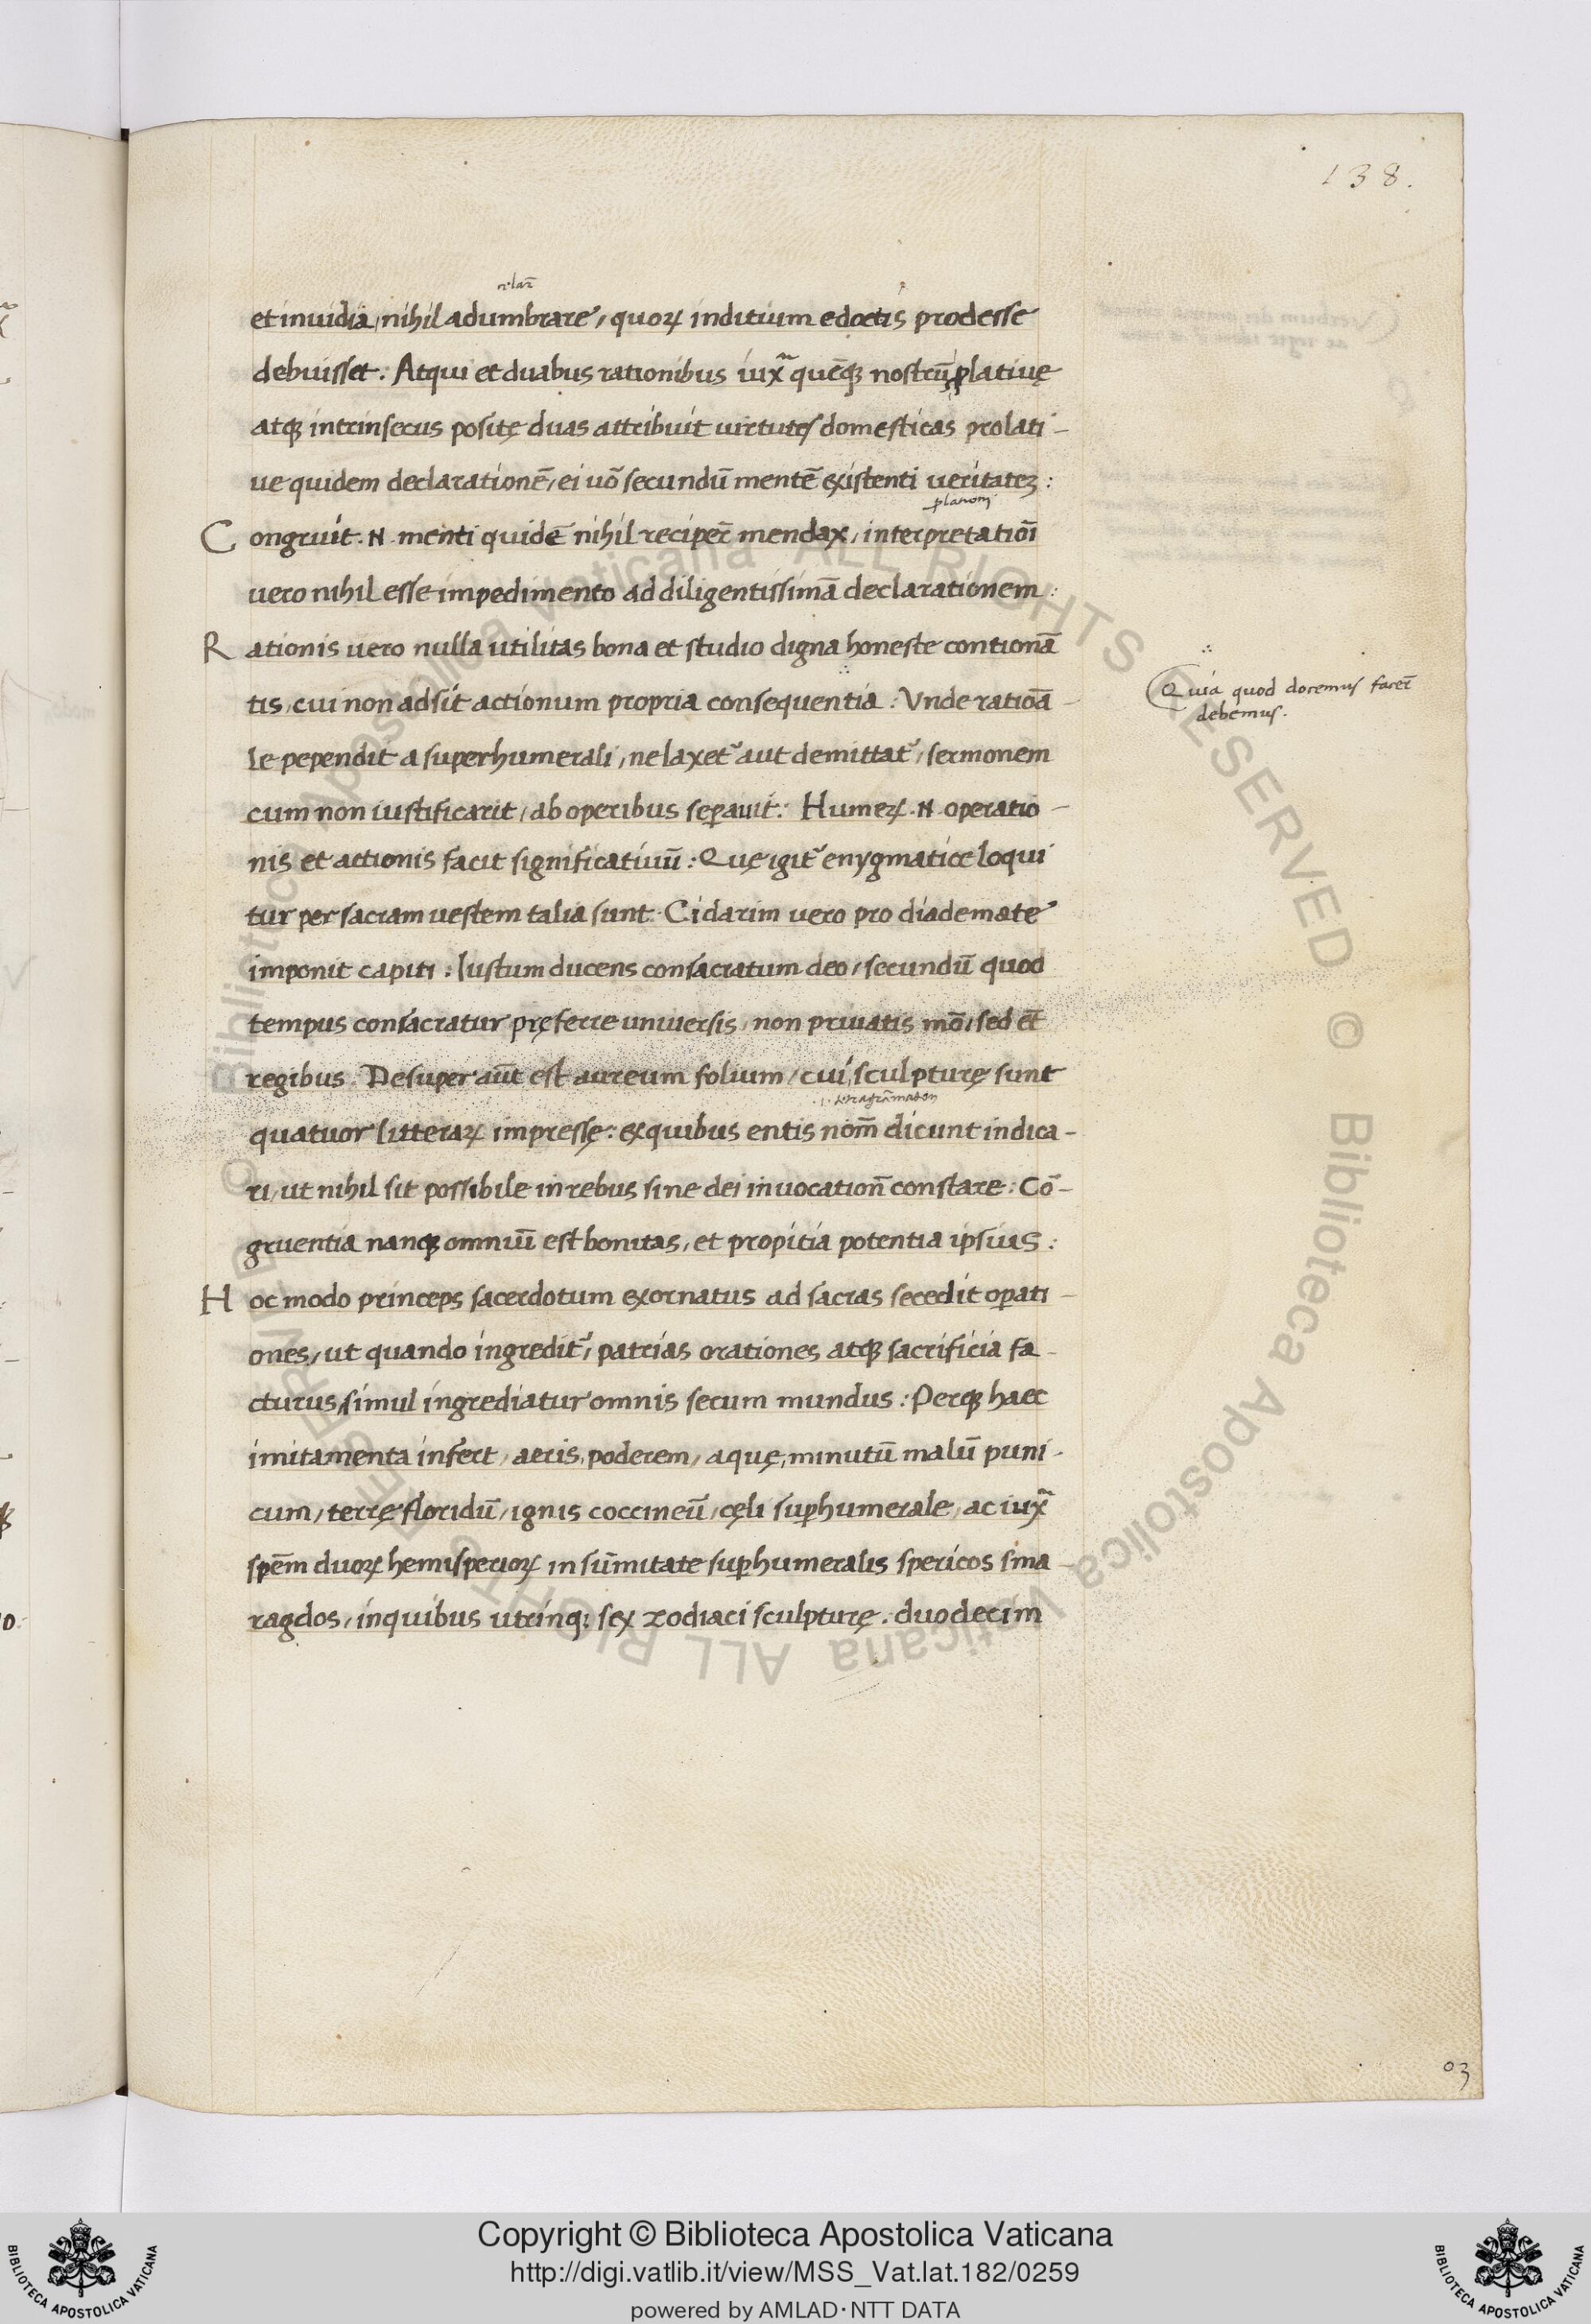 138.
uelar̄
et inuidia, nihil adumbrare, quoꝝ inditium edoctis prodesse
debuisset: Atqui et duabus rationibus iuxᵃ quēqꝫ nostrū ꝓlatiuę
atqꝫ intrinsecus positę duas attribuit uirtutes domesticas prolati-
ue quidem declarationē, ei uō secundū mentē existenti ueritateꝫ:
planom̄
Congruit .N. menti quidē nihil reciper̄ mendax, interpretatiōi
uero nihil esse impedimento ad diligentissimā declarationem:
Rationis uero nulla utilitas bona et studio digna honeste contionā
tis, cui non adsit actionum propria consequentia: Vnde rationā-
Quia quod docemus facer̄
debemus.
le pependit a superhumerali, ne laxet᷑ aut demittat᷑, sermonem
cum non iustificarit, ab operibus seꝑauit: Humeꝝ .N. operatio-
nis et actionis facit significatiuū: Quę igit᷑ enygmatice loqui
tur per sacram uestem talia sunt. Cidarim uero pro diademate
imponit capiti: Iustum ducens consacratum deo, secundū quod
tempus consacratur pręferre uniuersis, non priuatis mō, sed et̄
regibus. Desuper aūt est aureum folium, cui sculpturę sunt
.i. tetragrāmaton
quatuor litteraꝝ impressę: ex quibus entis nom̄ dicunt indica-
ri, ut nihil sit possibile in rebus sine dei inuocation̄ constare: Cō-
gruentia nanqꝫ omniū est bonitas, et propitia potentia ipsius:
Hoc modo princeps sacerdotum exornatus ad sacras secedit oꝑati-
ones, ut quando ingredit᷑, patrias orationes atqꝫ sacrificia fa-
cturus, simul ingrediatur omnis secum mundus: Perqꝫ haec
imitamenta infert, aeris, poderem, aquę, minutū malū puni-
cum, terrę floridū, ignis coccineū, cęli suꝑhumerale, ac iuxᵃ
spēm duoꝝ hemisperioꝝ in sūmitate suꝑhumeralis spericos sma-
ragdos, in quibus utrinqꝫ sex zodiaci sculpturę. duodecim
03
Copyright © Biblioteca Apostolica Vaticana
http://digi.vatlib.it/view/MSS_Vat.lat.182/0259
powered by AMLAD·NTT DATA
BIBLIOTECA APOSTOLICA VATICANA
BIBLIOTECA APOSTOLICA VATICANA
© Biblioteca Apostolica Vaticana ALL RIGHTS RESERVED © Biblioteca Apostolica Vaticana ALL RIGHTS RESERVED